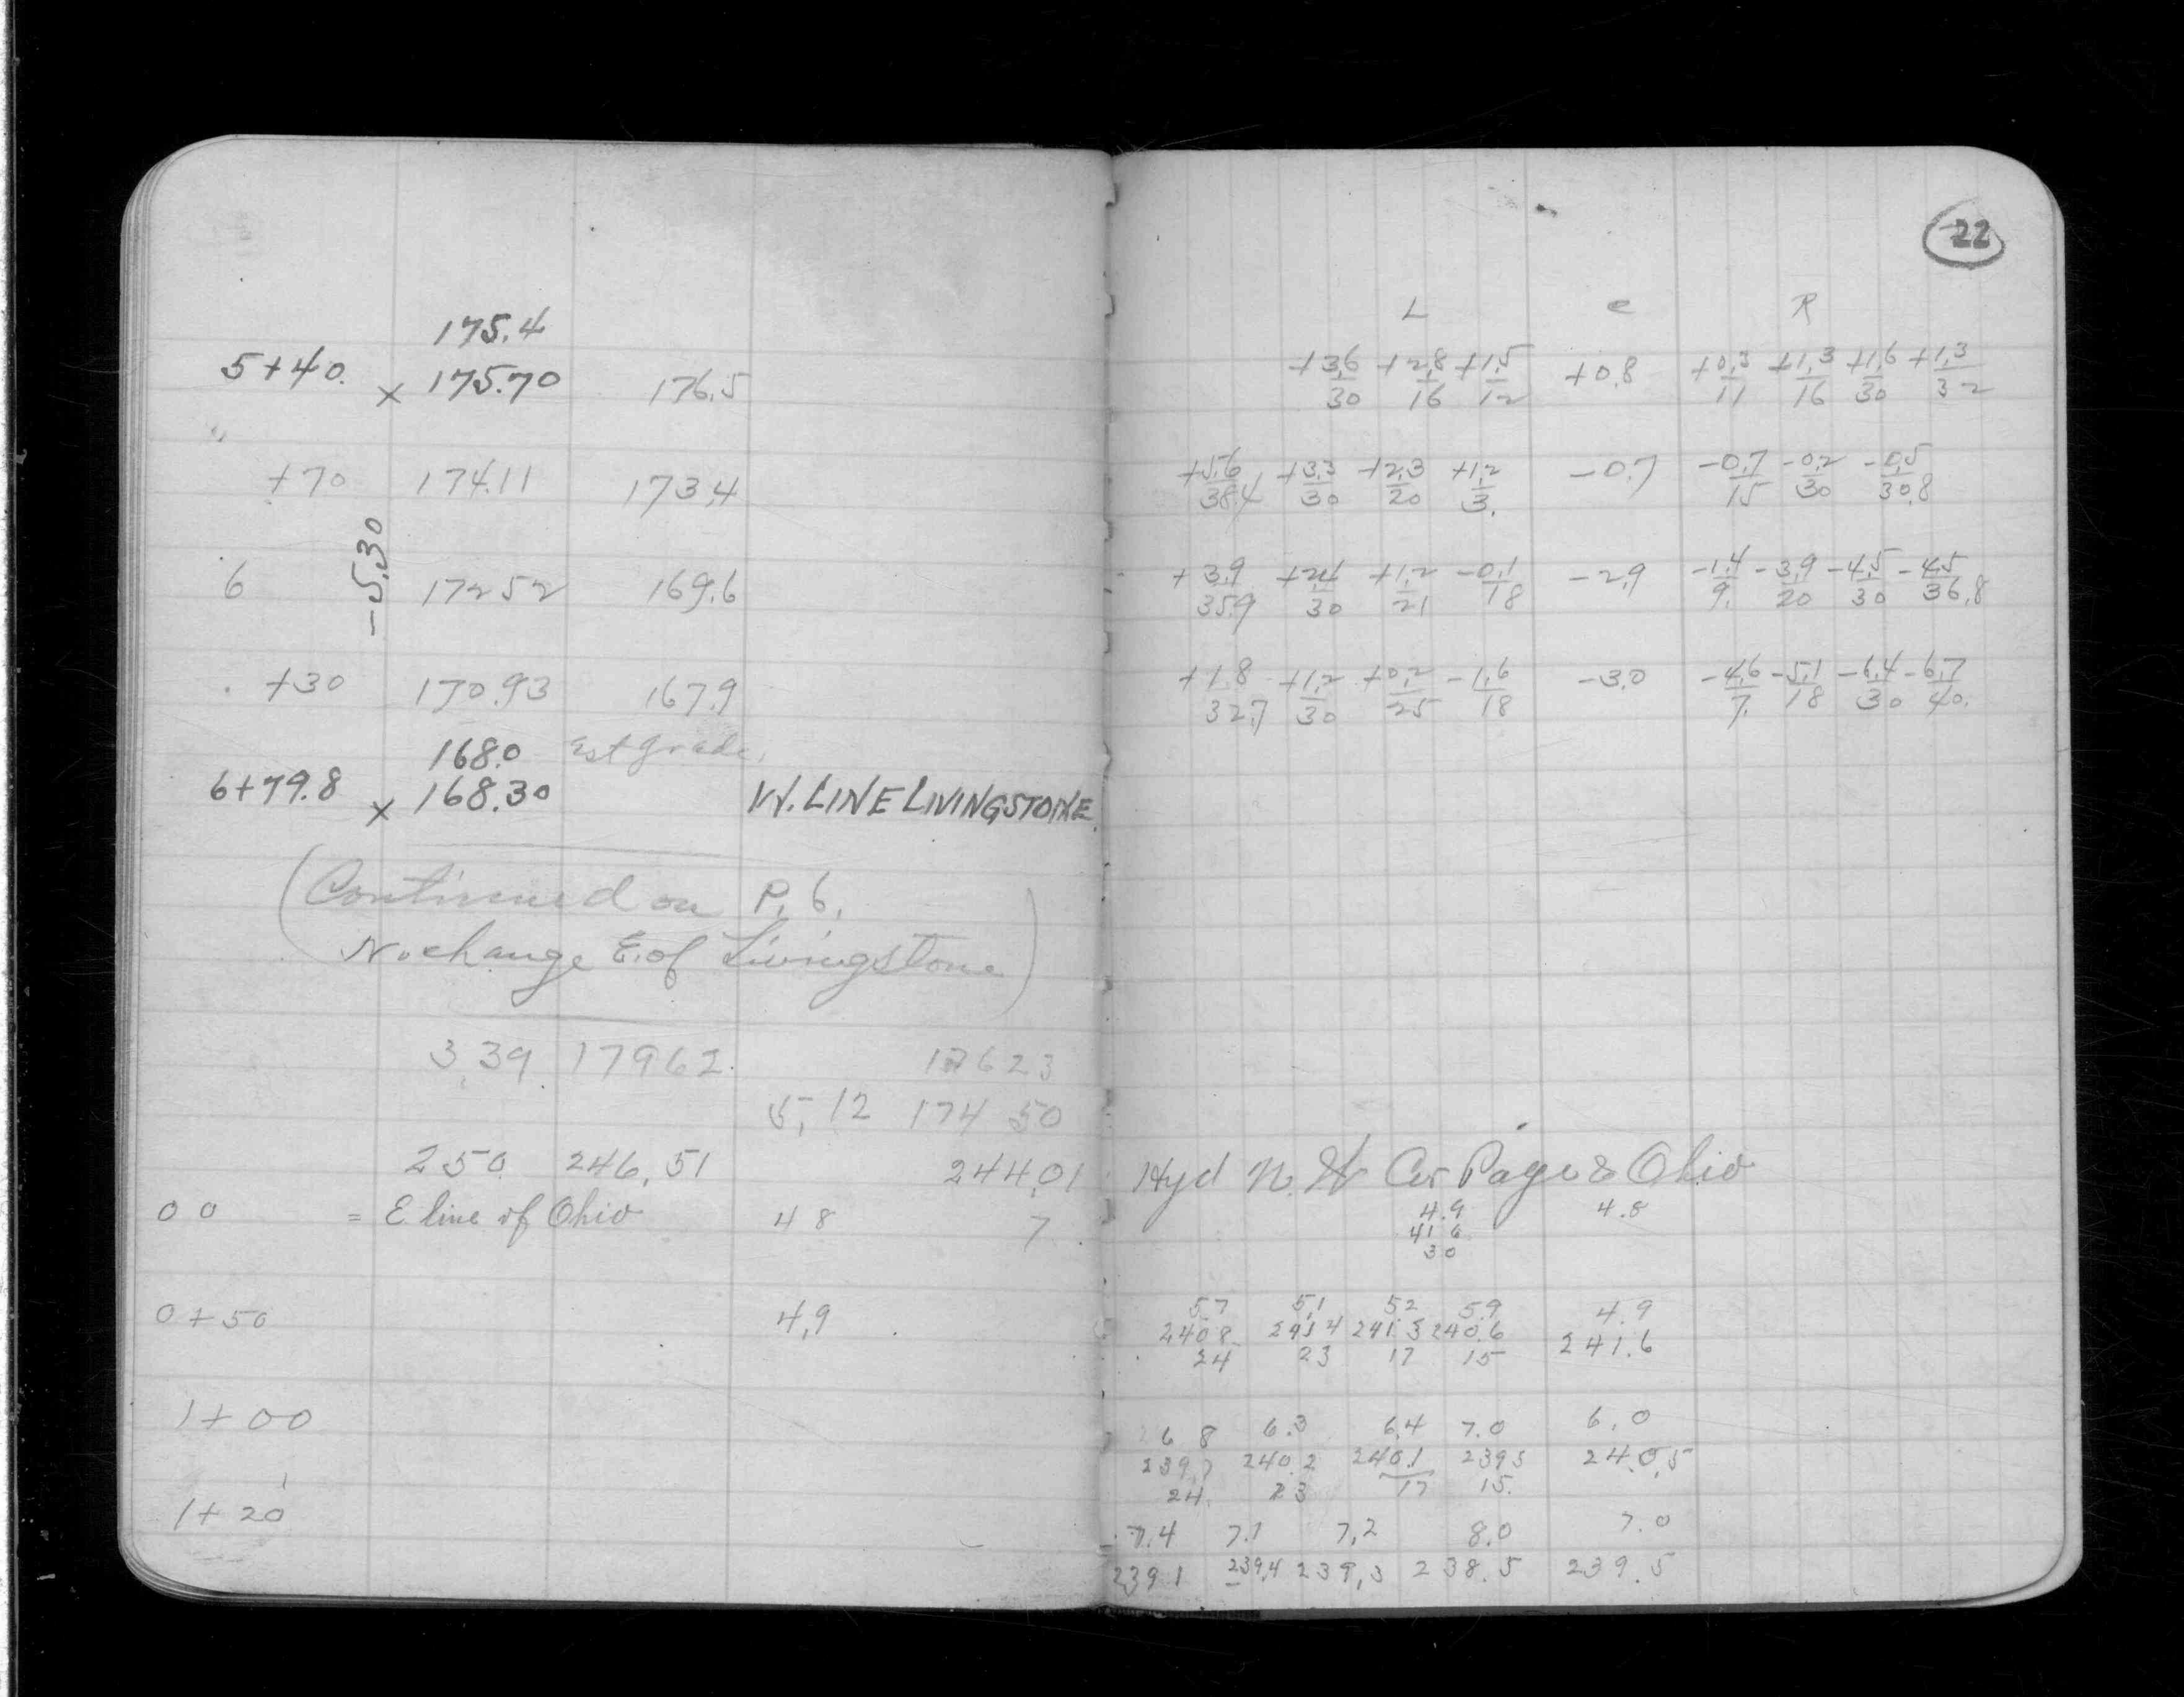 175.4
5+40. × 175.70 176.5
+70 174.11 173.4
-5.30
6 172 52 169.6
+30 170.93 167.9
168.0 Est grade.
6+79.8 × 168.30 W. LINE LIVINGSTONE.
(Continued on P. 6.
No change E. of Livingstone)
3.39 179 62 176 23
5.12 174 50
2 50 246.51 244.01
00 = E line of Ohio 4 8 7
0+50 4.9
1+00
1+20
22
L c R
+3.6 +2.8 +1.5 +0.8 +0.3 +1.3 +1.6 +1.3
30 16 12 11 16 30 32
+5.6 +3.3 +2.3 +1.2 -0.7 -0.7 -0.2 -0.5
38.4 30 20 3. 15 30 30.8
+3.9 +2.1 +1.2 -0.1 -2.9 -1.4 -3.9 -4.5 -4.5
35.9 30 21 18 9. 20 30 36.8
+1.8 +1.2 +0.2 -1.6 -3.0 -4.6 -5.1 -6.4 -6.7
32.7 30 25 18 7. 18 30 40.
Hyd N.W Cor Page & Ohio
4.9 4.8
41 6
30
5.7 5.1 5 2 5.9 4.9
240 8 241 4 241.3 240.6 241.6
24 23 17 15
6 8 6.3 6.4 7.0 6.0
239.7 240.2 240.1 239 5 240.5
24. 23 17 15.
7.4 7.1 7.2 8.0 7.0
239 1 239.4 239.3 238.5 239.5